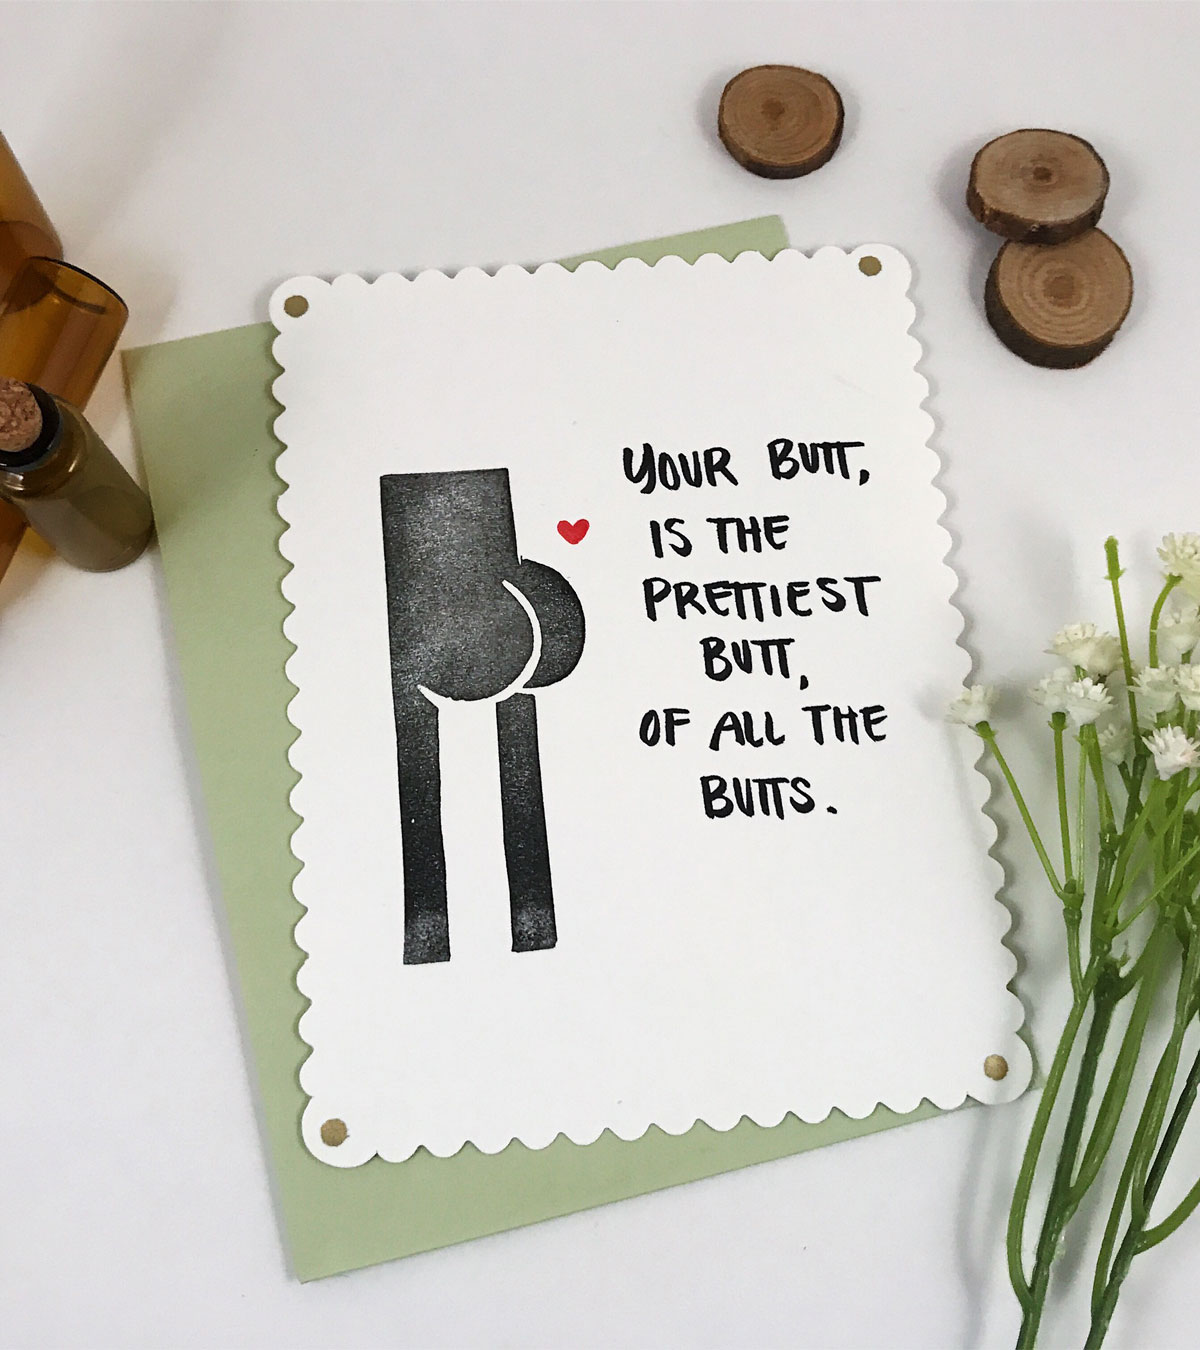 YOUR BUTT,
IS THE
PRETTIEST
BUTT,
OF ALL THE
BUTTS.